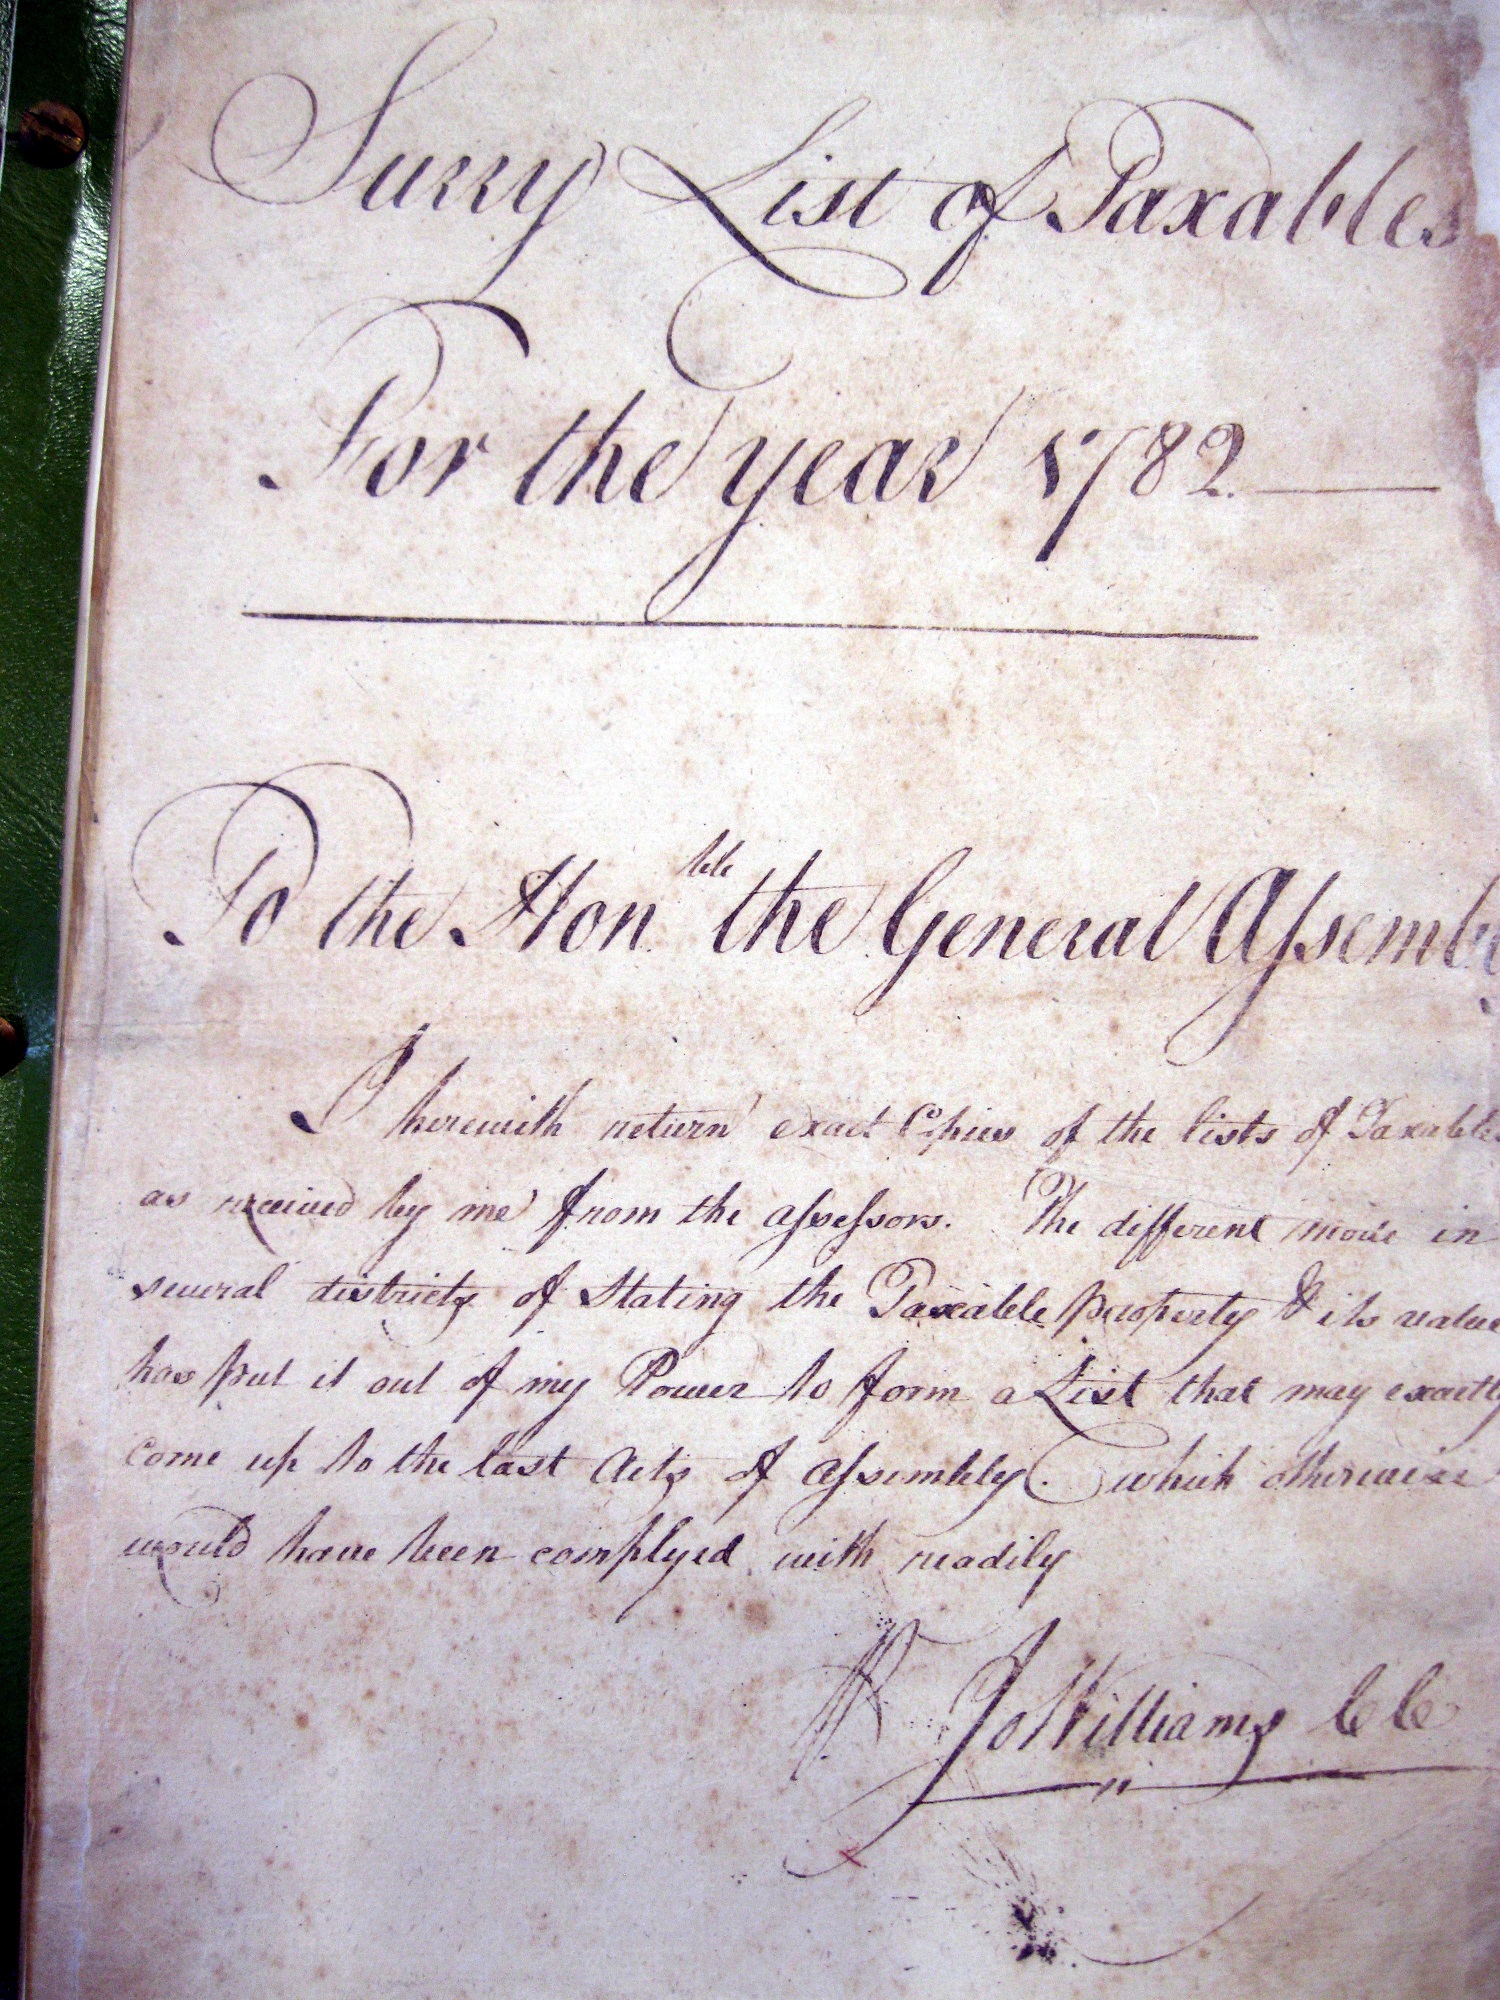 Surry List of Taxables
For the year 1782.
To the Hon.ble the General Assembly
I herewith return exact Copies of the lists of Taxables
as received by me from the assessors. The different mode in
several districts of Stating the Taxable property & its value
has put it out of my Power to form a List that may exactly
come up to the last Acts of assembly. which otherwise
would have been complyed with readily
Jo Williams CC